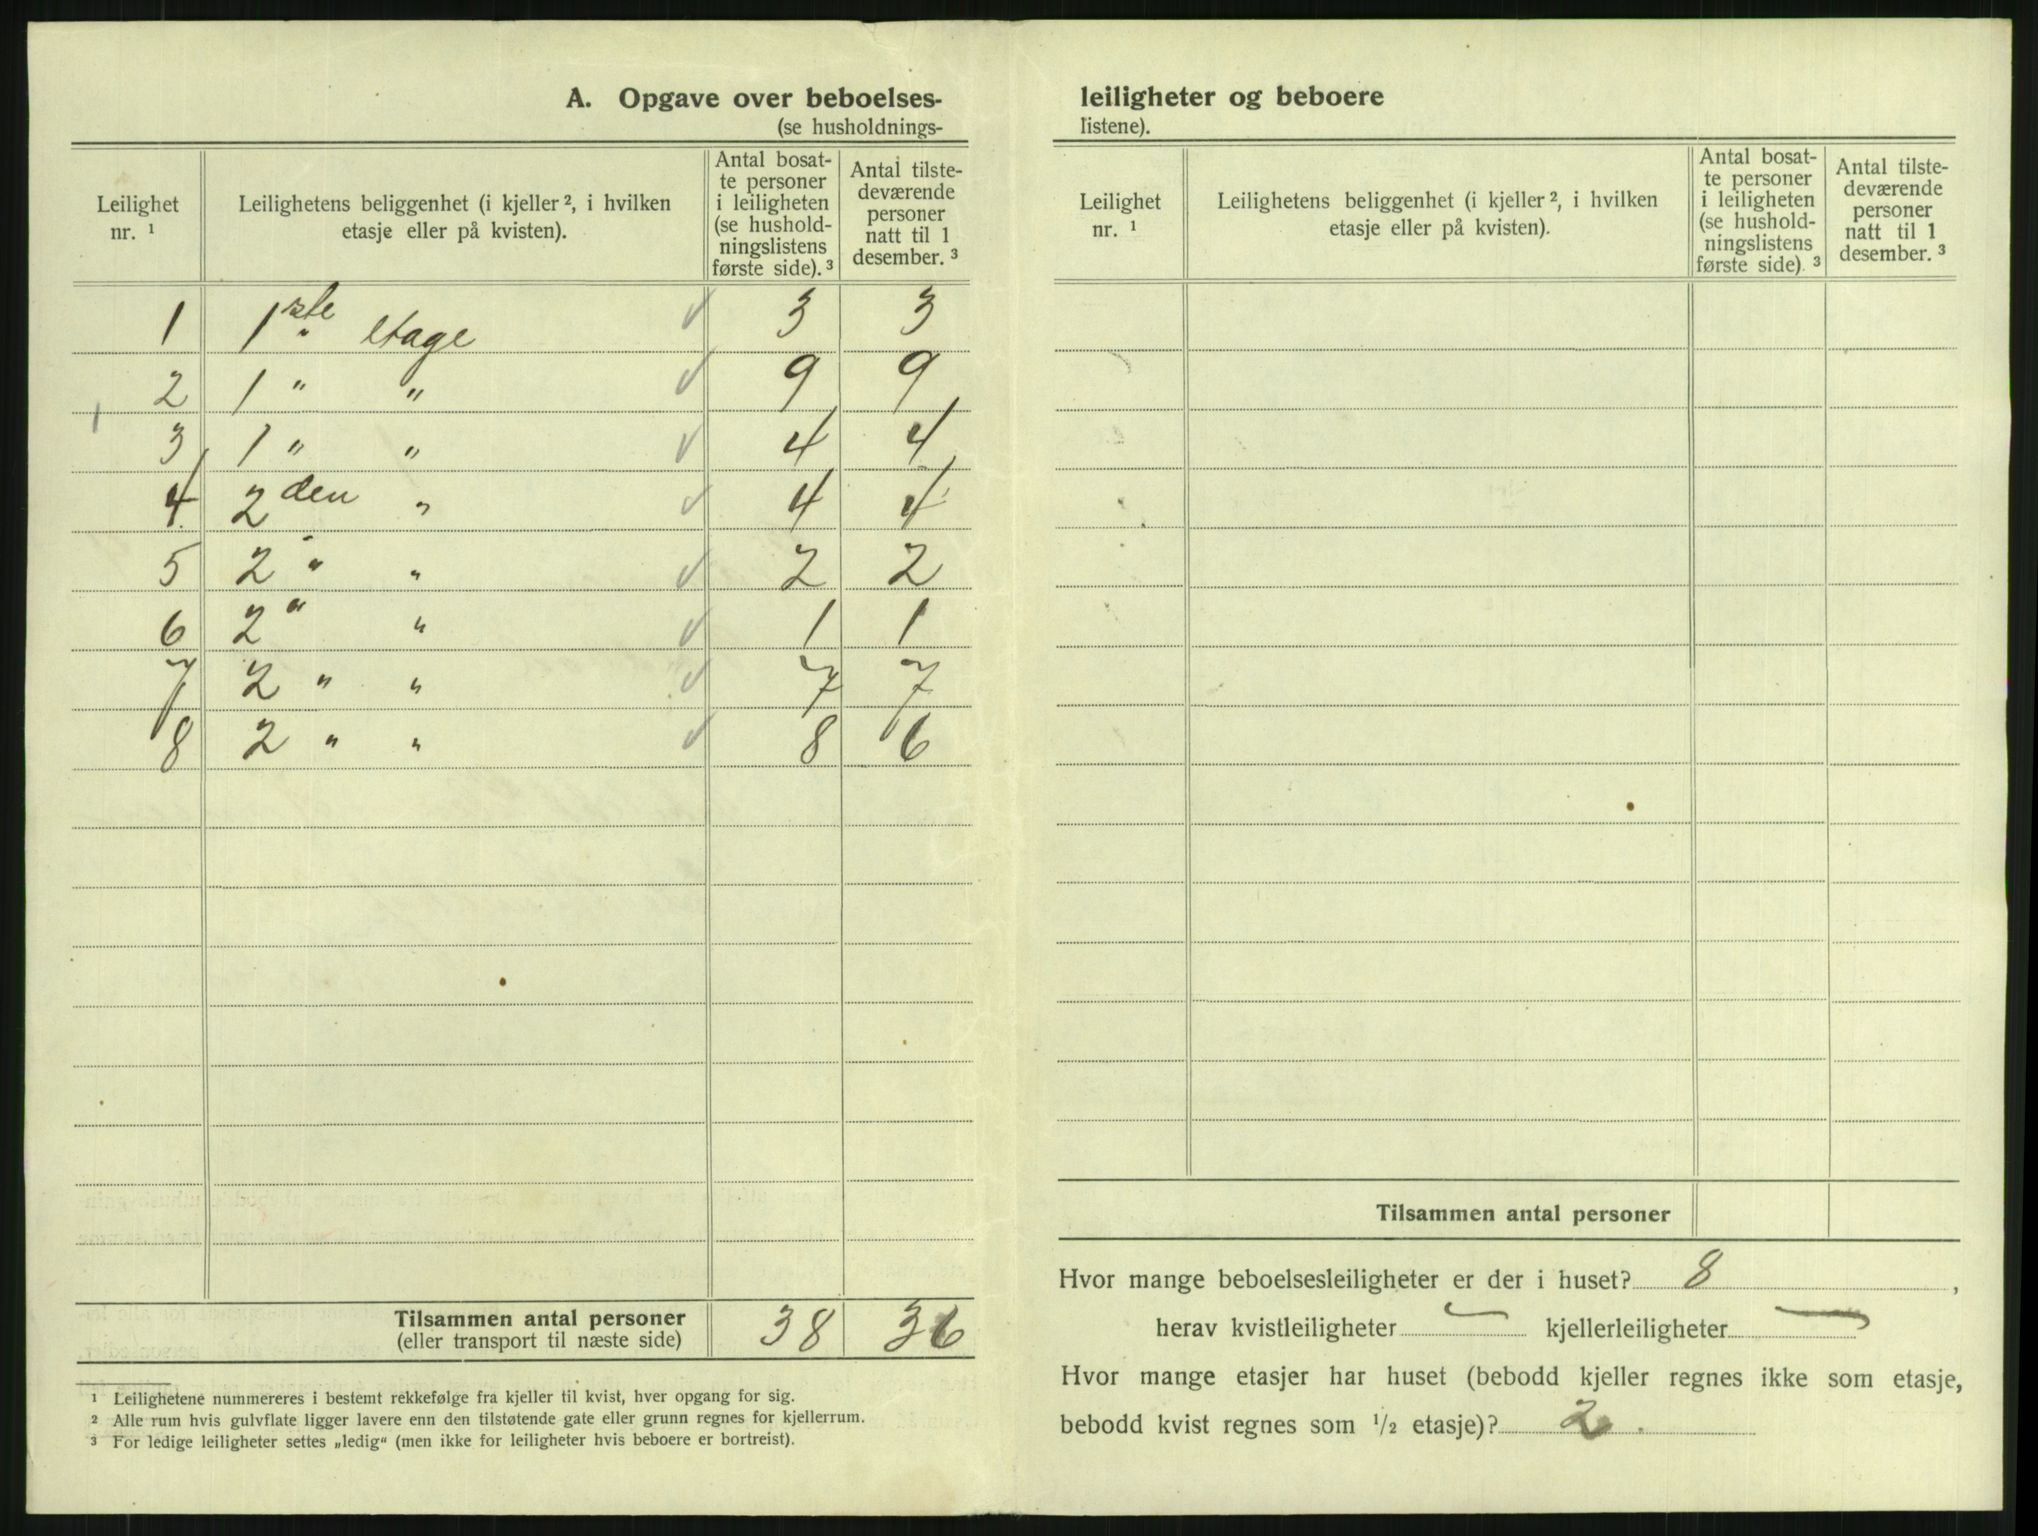 A. Opgave over beboelses-
(se husholdnings-
Leilighet nr. ¹ | Leilighetens beliggenhet (i kjeller ², i hvilken etasje eller på kvisten). | Antal bosat- te personer i leiligheten (se hushold- ningslistens første side). ³ | Antal tilste- deværende personer natt til 1 desember. ³
1 1ste " etage 3 3
2 1 " " 9 9
3 1 " " 4 4
4 2 den " 4 4
5 2 " " 2 2
6 2 " " 1 1
7 2 " " 7 7
8 2 " " 8 6
Tilsammen antal personer 38 36
(eller transport til næste side)
¹ Leilighetene nummereres i bestemt rekkefølge fra kjeller til kvist, hver opgang for sig.
² Alle rum hvis gulvflate ligger lavere enn den tilstøtende gate eller grunn regnes for kjellerrum.
³ For ledige leiligheter settes „ledig“ (men ikke for leiligheter hvis beboere er bortreist).
leiligheter og beboere
listene).
Leilighet nr. ¹ | Leilighetens beliggenhet (i kjeller ², i hvilken etasje eller på kvisten). | Antal bosat- te personer i leiligheten (se hushold- ningslistens første side) ³ | Antal tilste- deværende personer natt til 1 desember. ³
Tilsammen antal personer
Hvor mange beboelsesleiligheter er der i huset? 8 ,
herav kvistleiligheter — kjellerleiligheter —
Hvor mange etasjer har huset (bebodd kjeller regnes ikke som etasje,
bebodd kvist regnes som ½ etasje)? 2 .